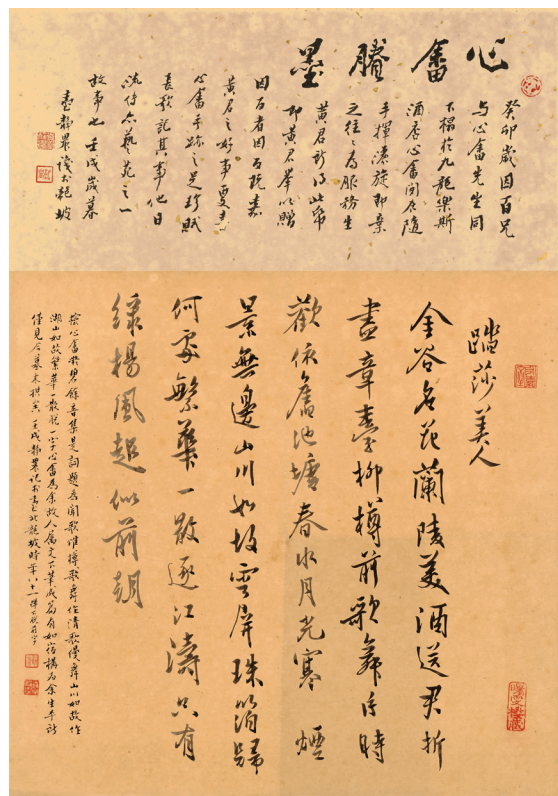 心畬賸墨
癸卯歲因百兄
与心畬先生同
下榻於九龍樂斯
酒店心畬閒居隨
手揮灑旋即棄
之往々為服務生
黃君所得此帋
即黃君舉以贈
因百者因百既嘉
黃君之好事更喜
心畬手跡之足珍賦
長歌記其事他日
流傳亦藝苑之一
故事也 壬戌歲暮
臺靜農識於龍坡
踏莎美人
金谷名花蘭陵美酒送君折
盡章臺柳樽前歌舞片時
歡依舊池塘春水月光寒 煙
景無邊山川如故雲屏珠箔歸
何處繁華一散逐江濤只有
綠楊風起似前朝
案心畬凝碧餘音集是詞題為聞歌惟樽歌舞作清歌慢舞山川如故作
湖山如故繁華一散脫一字心畬為余故人屬文下筆成篇有如宿構為余生平所
僅見今墓木拱矣 壬戌靜農記於臺北龍坡時年八十一 樽下脫前字